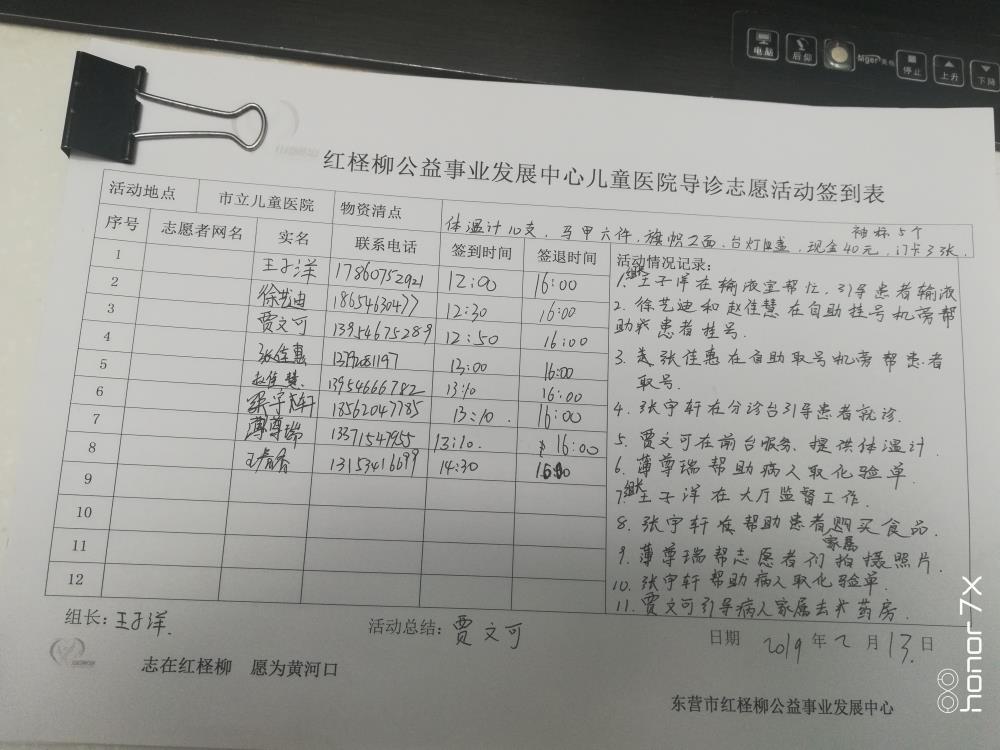 电脑 后仰 Mger 停止 上升 下降
红柽柳公益事业发展中心儿童医院导诊志愿活动签到表
活动地点 市立儿童医院 物资清点 体温计10支、马甲六件、旗帜2面、台灯1盏、现金40元、订卡3张、袖标5个
序号 志愿者网名 实名 联系电话 签到时间 签退时间
1 王子洋 17860752921 12:00 16:00
2 徐艺迪 18654630477 12:30 16:00
3 贾文可 13954675289 12:50 16:00
4 张佳惠 13:00 16:00
5 赵佳慧 13954666782 13:10 16:00
6 张宇轩 18562047785 13:10 16:00
7 薄尊瑞 13371547955 13:10 16:00
8 王青香 13153416699 14:30
9
10
11
12
活动情况记录:
1. 组长王子洋在输液室帮忙,引导患者输液
2. 徐艺迪和赵佳慧在自助挂号机旁帮
助患者挂号.
3. 张佳惠在自助取号机旁帮患者
取号.
4. 张宇轩在分诊台引导患者就诊.
5. 贾文可在前台服务、提供体温计
6. 薄尊瑞帮助病人取化验单.
7. 组长王子洋在大厅监督工作.
8. 张宇轩帮助患者家属购买食品.
9. 薄尊瑞帮志愿者们拍摄照片.
10. 张宇轩帮助病人取化验单.
11. 贾文可引导病人家属去药房.
组长: 王子洋.
活动总结: 贾文可
日期 2019年2月13日
志在红柽柳 愿为黄河口
东营市红柽柳公益事业发展中心
honor 7X